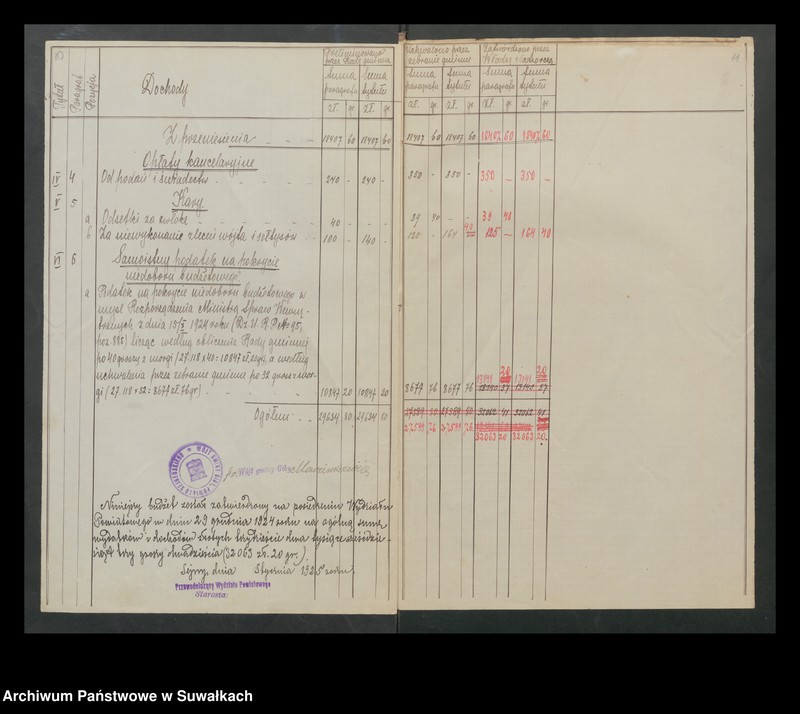 Tytuł Paragraf Pozycja Dochody
Preliminowano przez Radę gminną
Suma paragrafu Suma tytułu
zł. gr. zł. gr.
Uchwalono przez zebranie gminne
Suma paragrafu Suma tytułu
zł. gr. zł. gr.
Zatwierdzono przez Władzę Nadzorczą
Suma paragrafu Suma tytułu
zł. gr. zł. gr.
Z przeniesienia - - - 18407 60 18407 60 18407 60 18407 60 18407 60 18407 60
Opłaty kancelaryjne
IV 4 Od podań i świadectw - - - 240 - 240 - 350 - 350 - 350 - 350 -
V 5 Kary
a Odsetki za zwłokę - - - 40 - - - 39 40 - - 39 40
b Za niewykonanie zleceń wójta i sołtysów - - 100 - 140 - 120 - 164 40 125 - 164 40
VI 6 Samoistny podatek na pokrycie
niedoboru budżetowego
a Podatek na pokrycie niedoboru budżetowego w
myśl Rozporządzenia Ministra Spraw Wewnę-
trznych z dnia 15/X 1924 roku (Dz. U. R. P. № 95,
poz. 885) licząc według obliczenia Rady gminnej
po 40 groszy z morgi (27.118 x 40 = 10847 zł. 20 gr), a według
uchwalenia przez zebranie gminne po 32 grosze z mor-
gi (27.118 x 32 = 8677 zł. 76 gr) - - - 10847 20 10847 20 8677 76 8677 76 13141 20 13141 20
Ogółem - - 29634 80 29634 80
27599 76 27599 76 32063 20 32063 20.
WÓJT GMINY
p.o. Wójt gminy
Niniejszy budżet został zatwierdzony na posiedzeniu Wydziału
Powiatowego w dniu 29 grudnia 1924 roku na ogólną sumę
wydatków i dochodów złotych trzydzieście dwa tysiące sześćdzie-
siąt trzy grosy dwadzieścia (32063 zł. 20 gr.).
Sejny, dnia Stycznia 1925 roku.
Przewodniczący Wydziału Powiatowego
Starosta:
Archiwum Państwowe w Suwałkach